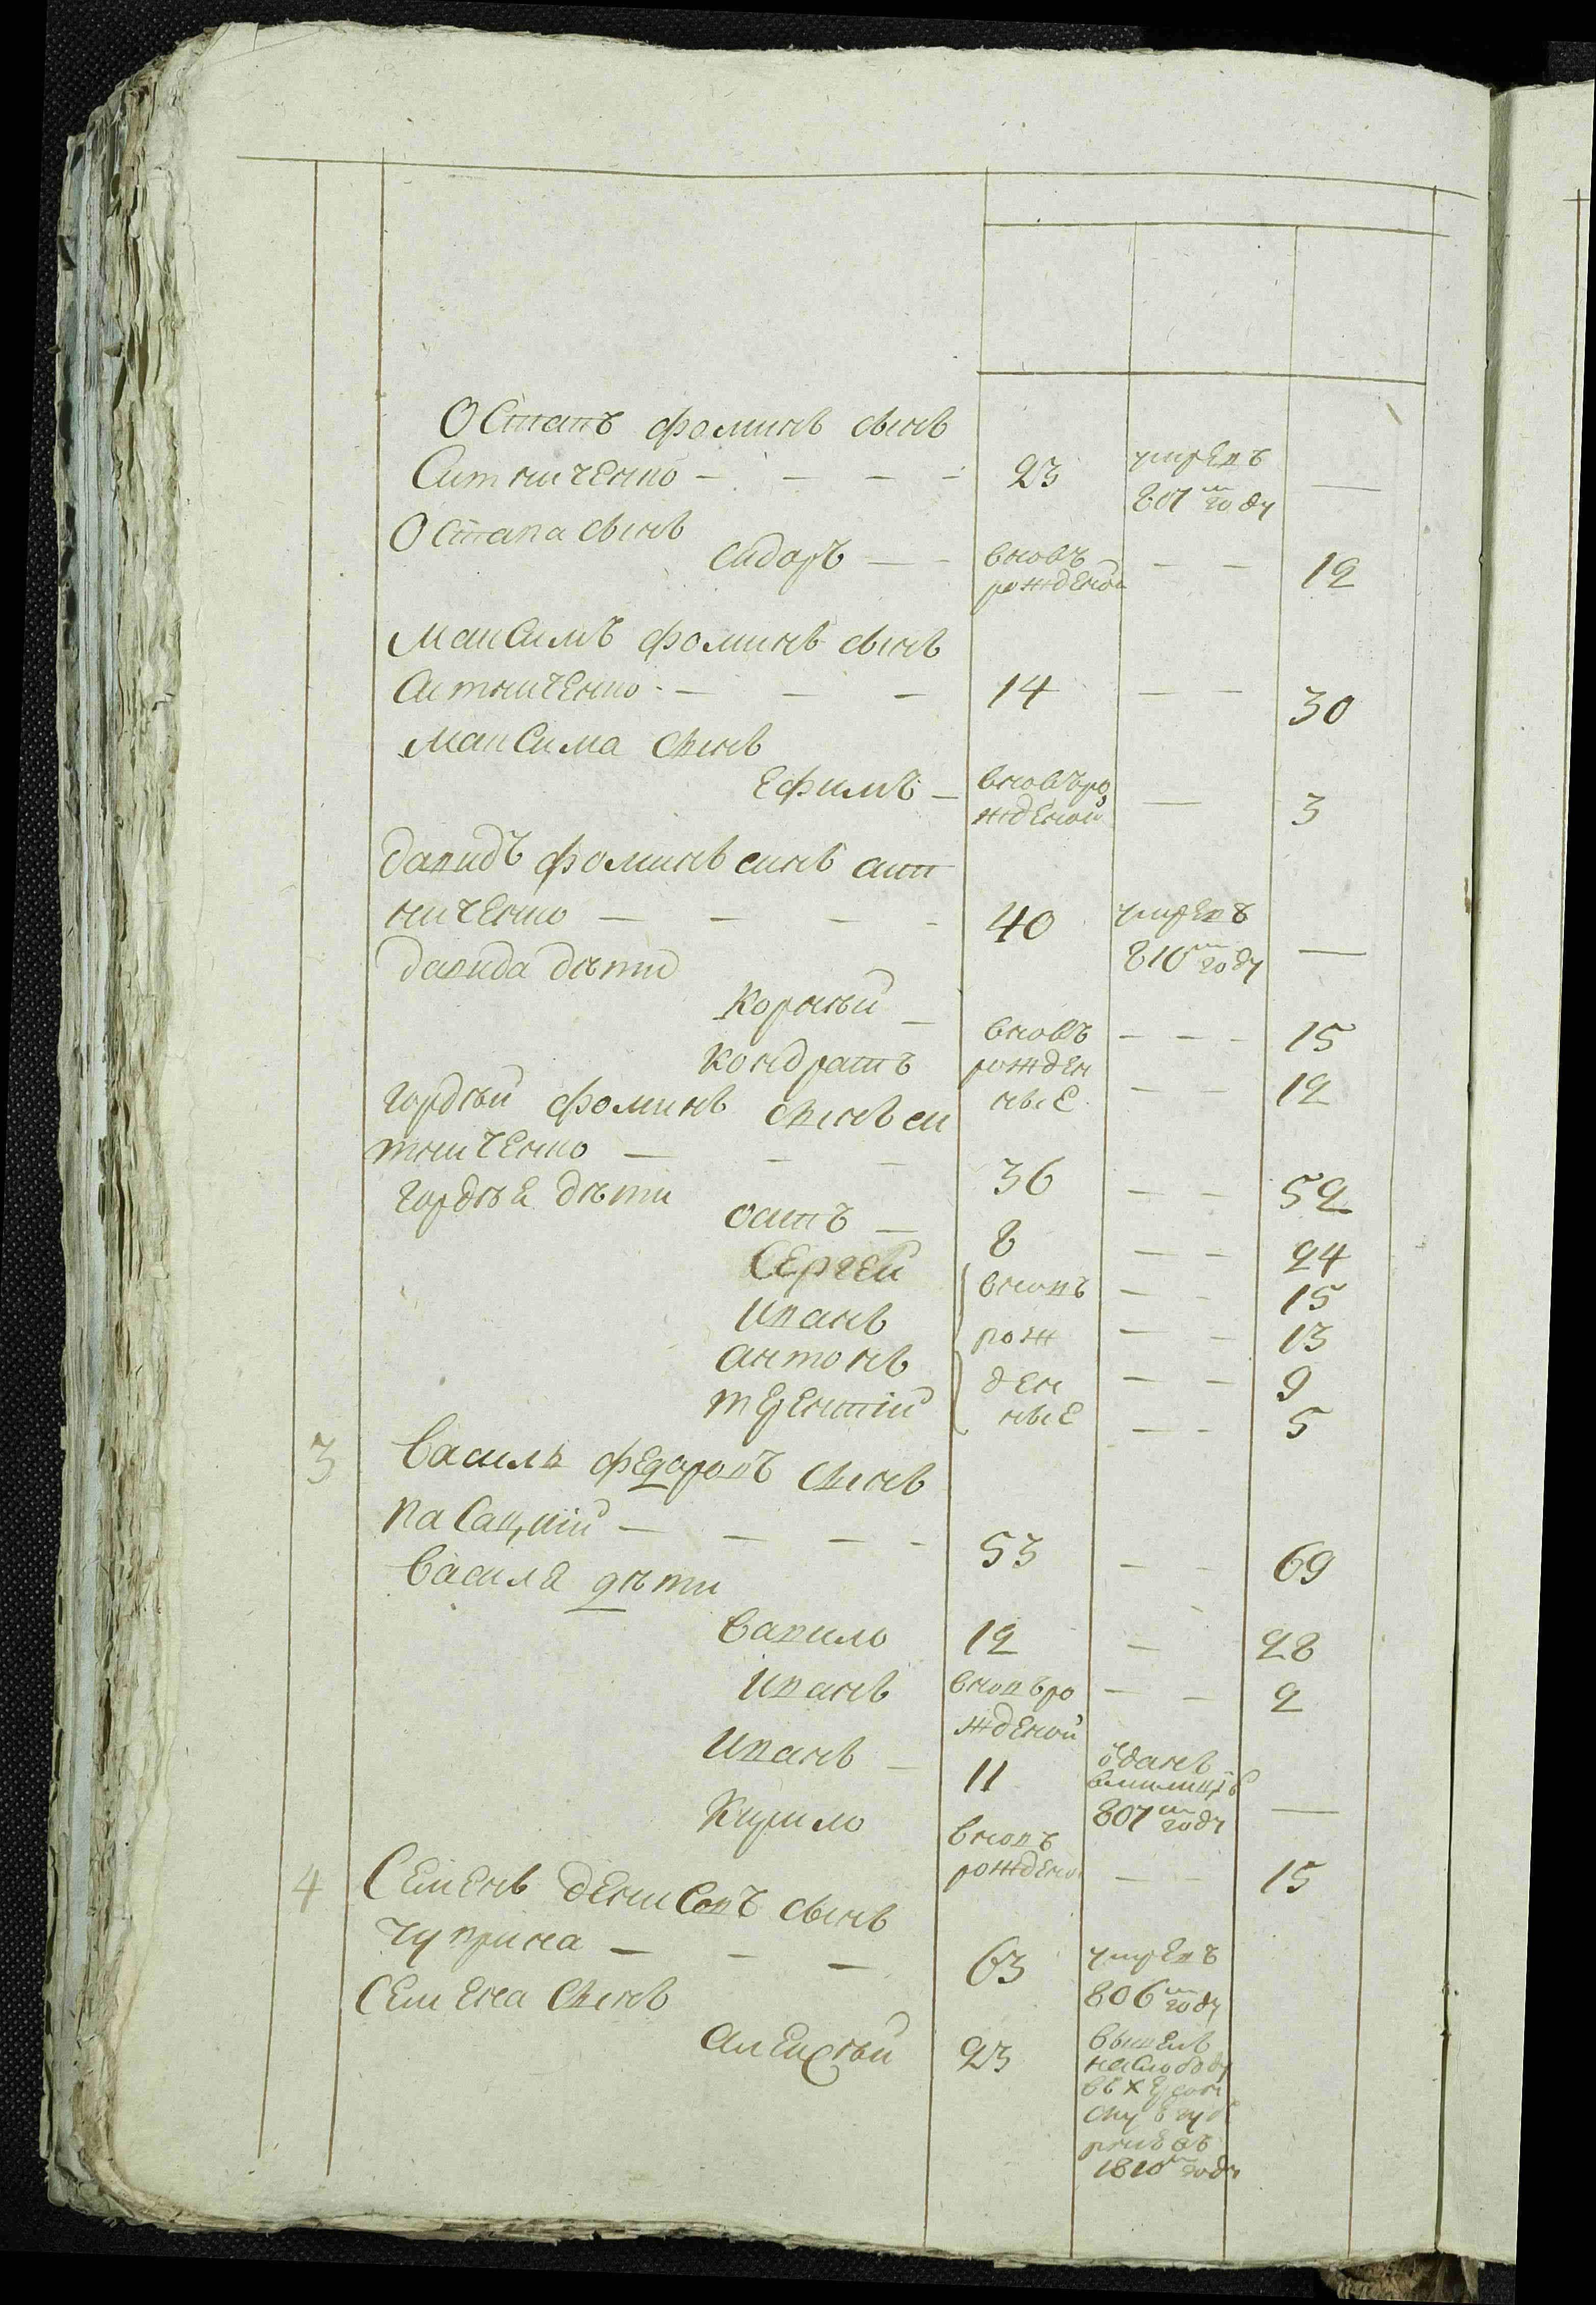 Остапъ фоминъ сынъ
Ситниченко — — — — 23 умревъ —
807м году
Остапа сынъ
Сидоръ — — вновъ — — 12
рожденой
Максимъ фоминъ сынъ
Ситниченко — — — 14 — — 30
Максима сынъ
Ефимъ — вновъро — 3
жденой
давидъ фоминъ синъ сит
ниченко — — — — 40 умревъ —
810м году
давида дѣти
Корнѣй — вновъ — — — 15
Кондратъ рожден — — 12
ные
гордѣй фоминъ сынъ си
тниченко — — — 36 — — 52
гордѣя дѣти
осипъ — 8 — — 24
Сергей вновъ — — 15
Иванъ рож — — 13
антонъ ден — — 9
терентій ные — — 5
3 Василь федоровъ сынъ
— — — — 53 — — 69
Василя дѣти
Вавило 12 — 28
Иванъ вновъро — — 2
жденой
Иванъ — 11 ѿданъ
вмилицію
807м году —
Кирило вновъ
рожденой — — 15
4 Семенъ денисовъ сынъ
Чуприна — — — 63 умревъ
806м году
Семена сынъ
Алексѣй 23 вышелъ
наслободу
въ херсон
скую гу
1810м году